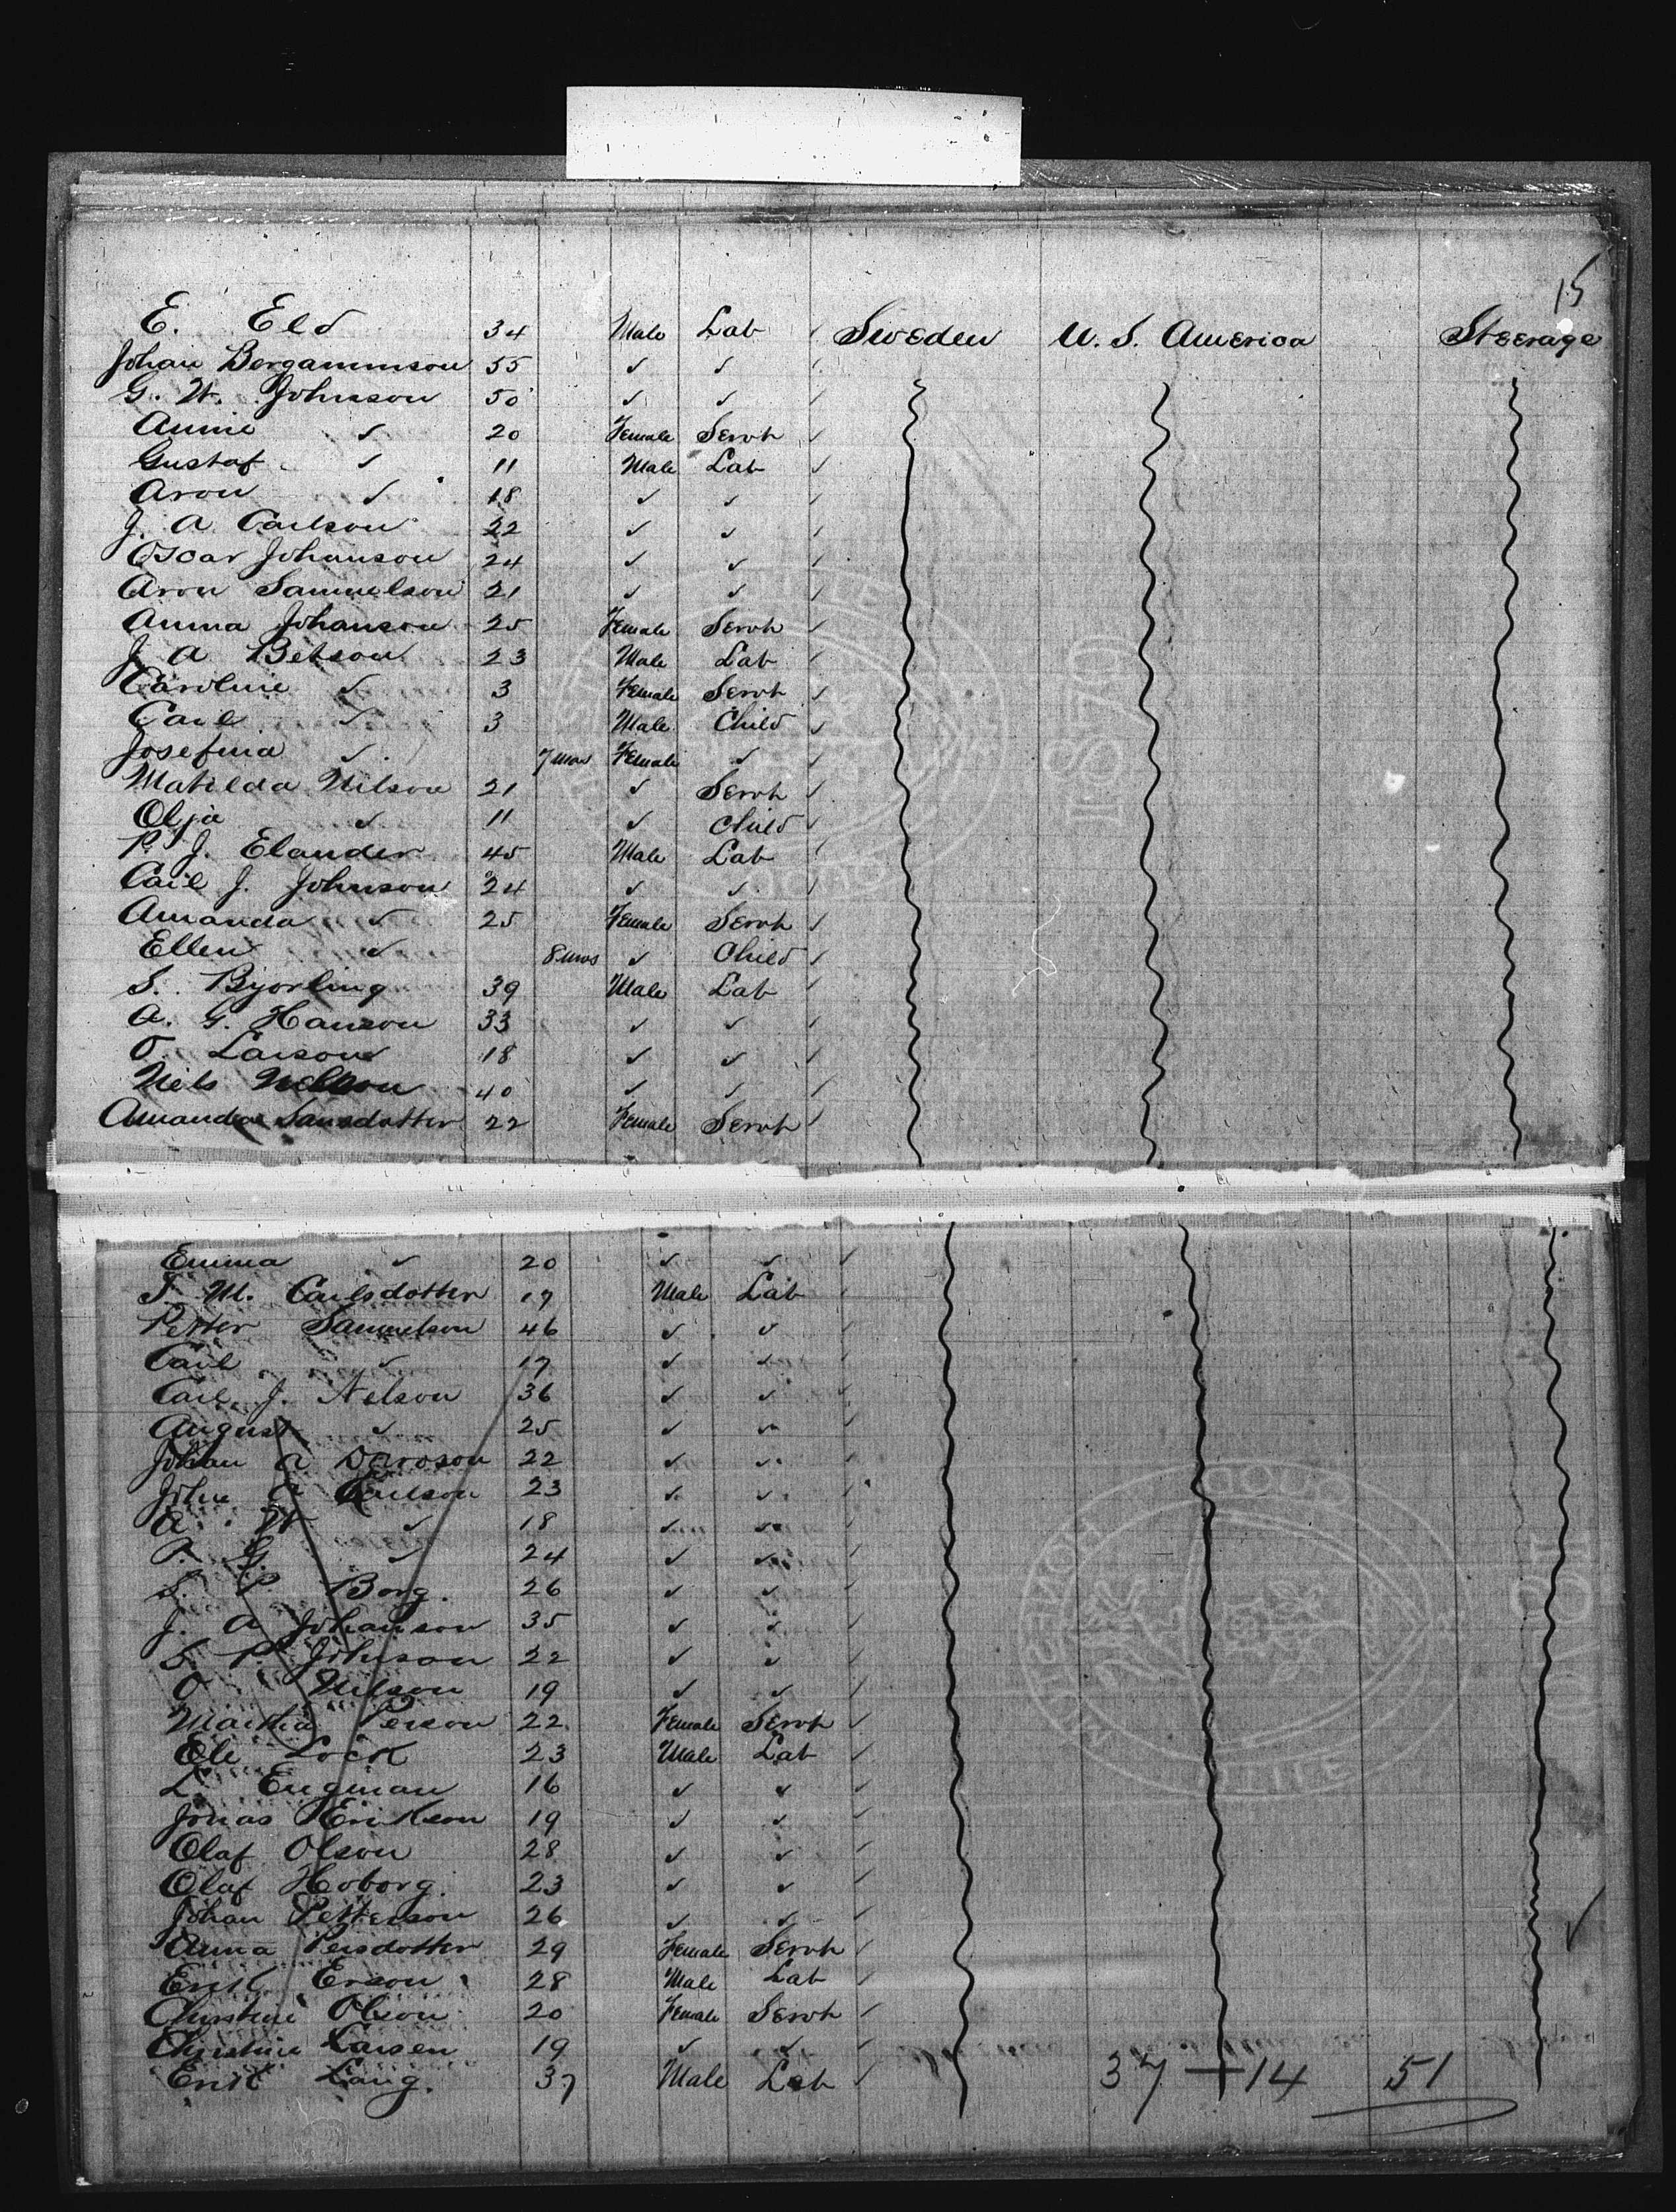 15
E. Eld 34 Male Lab ✓ Sweden U. S. America Steerage
Johan Bergammson 55 ✓ ✓
G. W. Johnson 50 ✓ ✓ ✓
Annie ✓ 20 Female Servt ✓
Gustaf ✓ 11 Male Lab ✓
Aron ✓ 18 ✓ ✓ ✓
J. A Carlson 22 ✓ ✓ ✓
Oscar Johanson 24 ✓ ✓ ✓
Aron Samuelson 21 ✓ ✓ ✓
Anna Johanson 25 Female Servt ✓
J. A Betson 23 Male Lab ✓
Caroline ✓ 3 Female Servt ✓
Carl ✓ 3 Male Child ✓
Josefina ✓ 7 mos Female ✓ ✓
Matilda Nilson 21 ✓ Servt ✓
Olja ✓ 11 ✓ Child ✓
P. J. Elander 45 Male Lab ✓
Carl J. Johnson 24 ✓ ✓ ✓
Amanda ✓ 25 Female Servt ✓
Ellen ✓ 8 mos ✓ Child ✓
S. Bjorling 39 Male Lab ✓
A. G. Hanson 33 ✓ ✓ ✓
O. Larson 18 ✓ ✓ ✓
Nels Nelson 40 ✓ ✓ ✓
Amanda Sansdotter 22 Female Servt ✓
Emma ✓ 20 ✓ ✓ ✓
J. M. Carlsdotter 17 Male Lab ✓
Petter Samuelson 46 ✓ ✓ ✓
Carl ✓ 17 ✓ ✓ ✓
Carl J. Nelson 36 ✓ ✓ ✓
August ✓ 25 ✓ ✓ ✓
Johan A 22 ✓ ✓ ✓
John A Carlson 23 ✓ ✓ ✓
A. W ✓ 18 ✓ ✓ ✓
P. G. ✓ 24 ✓ ✓ ✓
S. P. Borg 26 ✓ ✓ ✓
J. A Johanson 35 ✓ ✓ ✓
S. P. Johnson 22 ✓ ✓ ✓
O Nilson 19 ✓ ✓ ✓
Martha Person 22 Female Servt ✓
Ole Lock 23 Male Lab ✓
L. Engman 16 ✓ ✓ ✓
Jonas Erikson 19 ✓ ✓ ✓
Olaf Olson 28 ✓ ✓ ✓
Olaf Hoborg 23 ✓ ✓ ✓
Johan Petterson 26 ✓ ✓ ✓
Anna Persdotter 29 Female Servt ✓
Erik Erson 28 Male Lab ✓
Christine Olson 20 Female Servt ✓
Christine Larsen 19 ✓ ✓ ✓
Erik Lang. 37 Male Lab ✓ 37 + 14 51